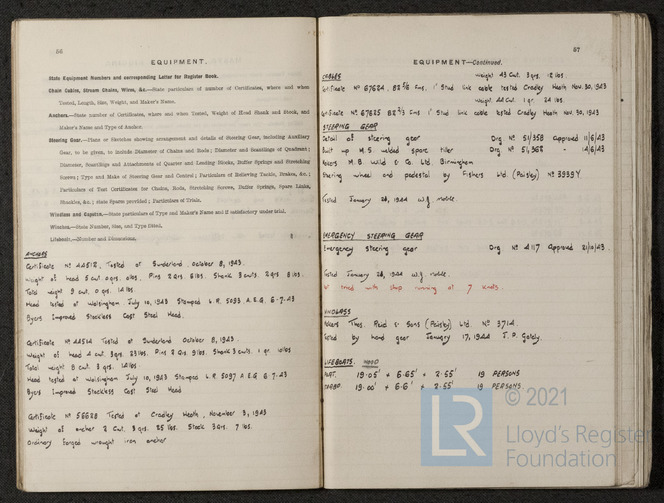 56
EQUIPMENT.
State Equipment Numbers and corresponding Letter for Register Book.
Chain Cables, Stream Chains, Wires, &c.—State particulars of number of Certificates, where and when
Tested, Length, Size, Weight, and Maker's Name.
Anchors.—State number of Certificates, where and when Tested, Weight of Head Shank and Stock, and
Maker's Name and Type of Anchor.
Steering Gear.—Plans or Sketches showing arrangement and details of Steering Gear, including Auxiliary
Gear, to be given, to include Diameter of Chains and Rods; Diameter and Scantlings of Quadrant;
Diameter, Scantlings and Attachments of Quarter and Leading Blocks, Buffer Springs and Stretching
Screws; Type and Make of Steering Gear and Control; Particulars of Relieving Tackle, Brakes, &c.;
Particulars of Test Certificates for Chains, Rods, Stretching Screws, Buffer Springs, Spare Links,
Shackles, &c.; State Spares provided; Particulars of Trials.
Windlass and Capstan.—State particulars of Type and Maker's Name and if satisfactory under trial.
Winches.—State Number, Size, and Type fitted.
Lifeboats.—Number and Dimensions.
ANCHORS
Certificate Nº 44512, Tested at Sunderland October 8, 1943.
Weight of head 5 cwt 0 qrs. 0 lbs. Pins 2 qrs 6 lbs. Shank 3 cwts. 2 qrs 8 lbs.
Total weight 9 cwt. 0 qrs. 14 lbs.
Head tested at Walsingham July 10, 1943 Stamped L.R. 5093 A.E.G. 6-7-43
Byers Improved Stockless Cast Steel Head.
Certificate Nº 44514 Tested at Sunderland October 8, 1943.
Weight of head 4 cwt 3 qrs. 23 lbs. Pins 2 qrs 9 lbs. Shank 3 cwts. 1 qr 10 lbs
Total weight 8 cwt 3 qrs. 14 lbs
Head tested at Walsingham July 10, 1943 Stamped L.R. 5097 A.E.G. 6-7-43
Byers Improved Stockless Cast Steel Head
Certificate Nº 56628 Tested at Cradley Heath, November 3, 1943
Weight of anchor 2 Cwt. 3 qrs. 25 lbs. Stock 3 qrs. 7 lbs.
Ordinary forged wrought iron anchor
57
EQUIPMENT—Continued.
CABLES Weight 43 Cwt. 3 qrs. 12 lbs.
Certificate Nº 67624, 82 2/3 fms. 1" Stud link cable tested Cradley Heath Nov. 30, 1943
Weight 44 Cwt. 1 qr. 24 lbs.
Certificate Nº 67625 82 2/3 fms 1" Stud link cable tested Cradley Heath Nov. 30, 1943
STEERING GEAR
Detail of steering gear Drg Nº 51/358 Approved 11/6/43
Built up M.S. welded spare tiller Drg Nº 51,368 - 14/6/43
Makers M. B. Wild & Co. Ltd. Birmingham
Steering wheel and pedestal by Fishers Ltd. (Paisley) Nº 3939Y
Tested January 28, 1944 W.G.
EMERGENCY STEERING GEAR
Emergency steering gear Drg Nº 4117 Approved 21/10/43.
Tested January 28, 1944 W.G.
tried with ship running at 7 knots.
WINDLASS
Makers Thos. Reid & Sons (Paisley) Ltd. Nº 3714.
Tested by hand gear January 17, 1944
LIFEBOATS. WOOD
19.05' × 6.65' × 2.55' 19 PERSONS
19.00' × 6.6' × 2.55' 19 PERSONS
© 2021
LR
Lloyd's Register
Foundation